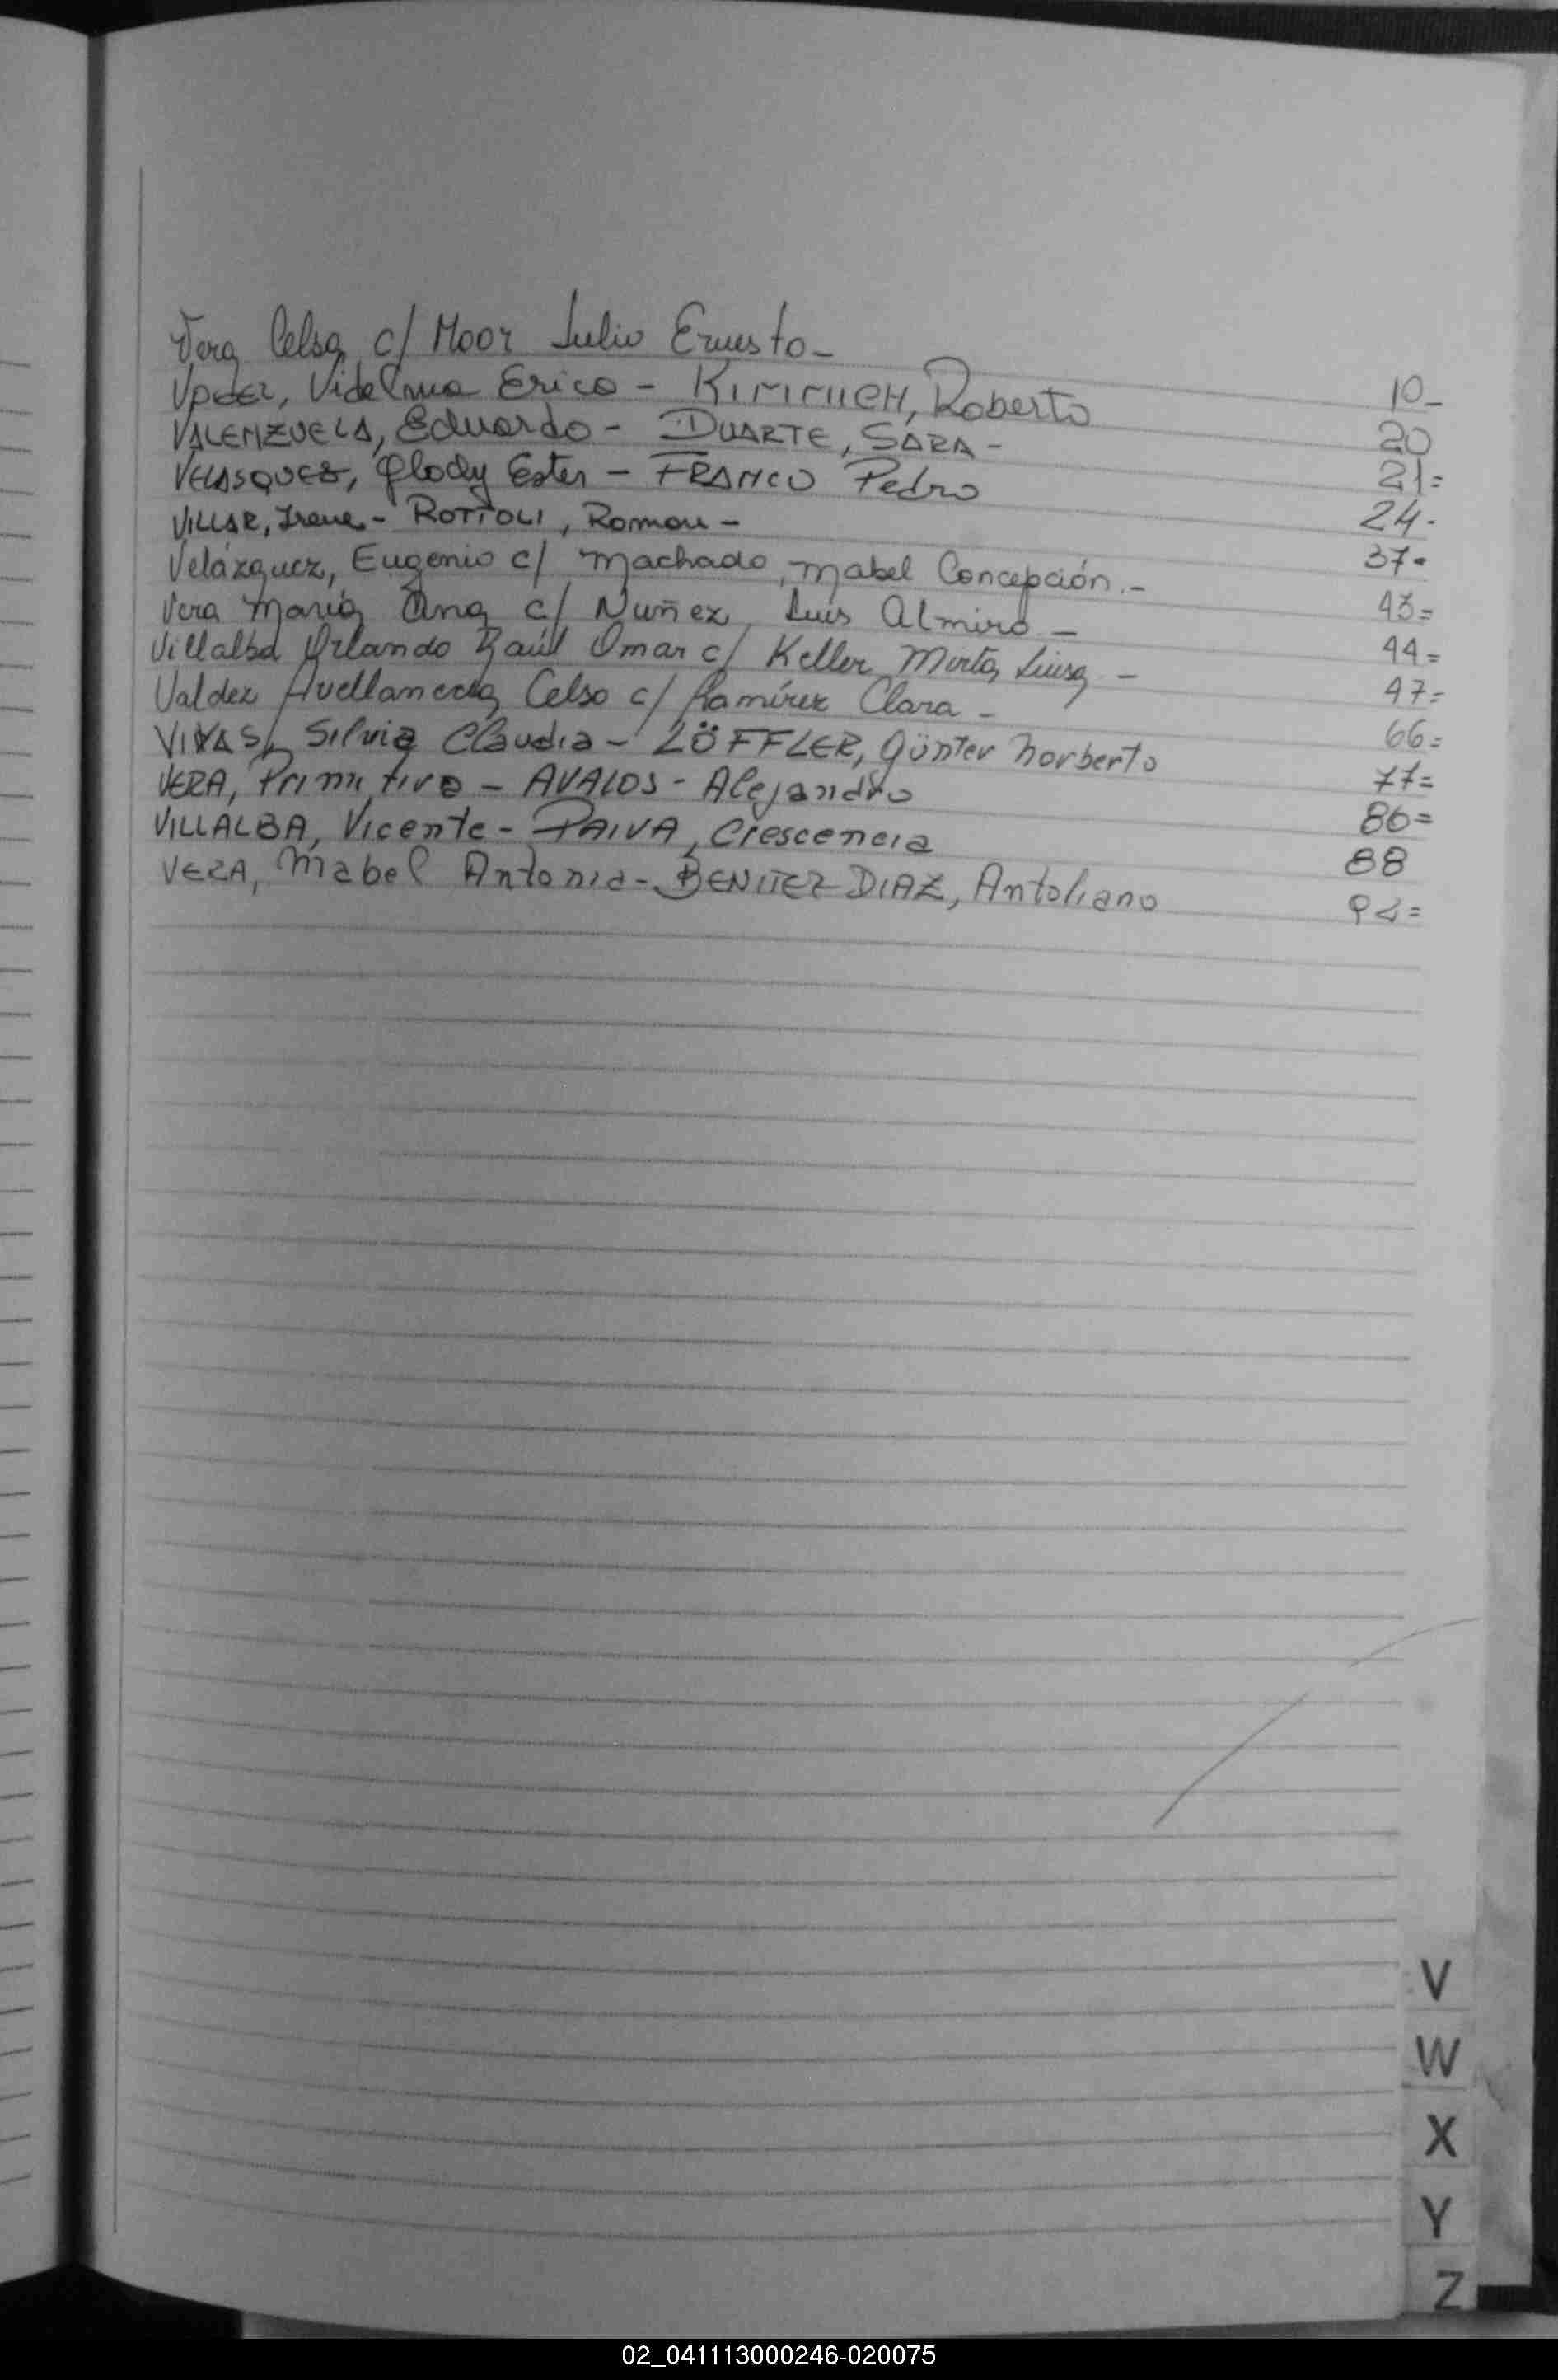 Vera Celsa c/ Moor Julio Ernesto - 10-
Vidalma Erico - Roberto 20
VALENZUELA, Eduardo - DUARTE, SARA - 21=
VELASQUEZ, Glody Ester - FRANCO Pedro 24-
VILLAR, Irene - ROTTOLI, Roman - 37-
Velázquez, Eugenio c/ Machado, Mabel Concepción.- 43=
Vera María Ana c/ Nuñez, Luis Almiro - 44=
Villalba Orlando Raúl Omar c/ Keller Mirta Luisa - 47=
Valdez Avellaneda Celso c/ Ramírez Clara - 66=
VIVAS, Silvia Claudia - LÖFFLER, Günter Norberto 77=
VERA, Primitiva - AVALOS - Alejandro 86=
VILLALBA, Vicente - PAIVA, Crescencia 88
VERA, Mabel Antonia - BENITEZ DIAZ, Antoliano 92=
V
W
X
Y
Z
02_041113000246-020075